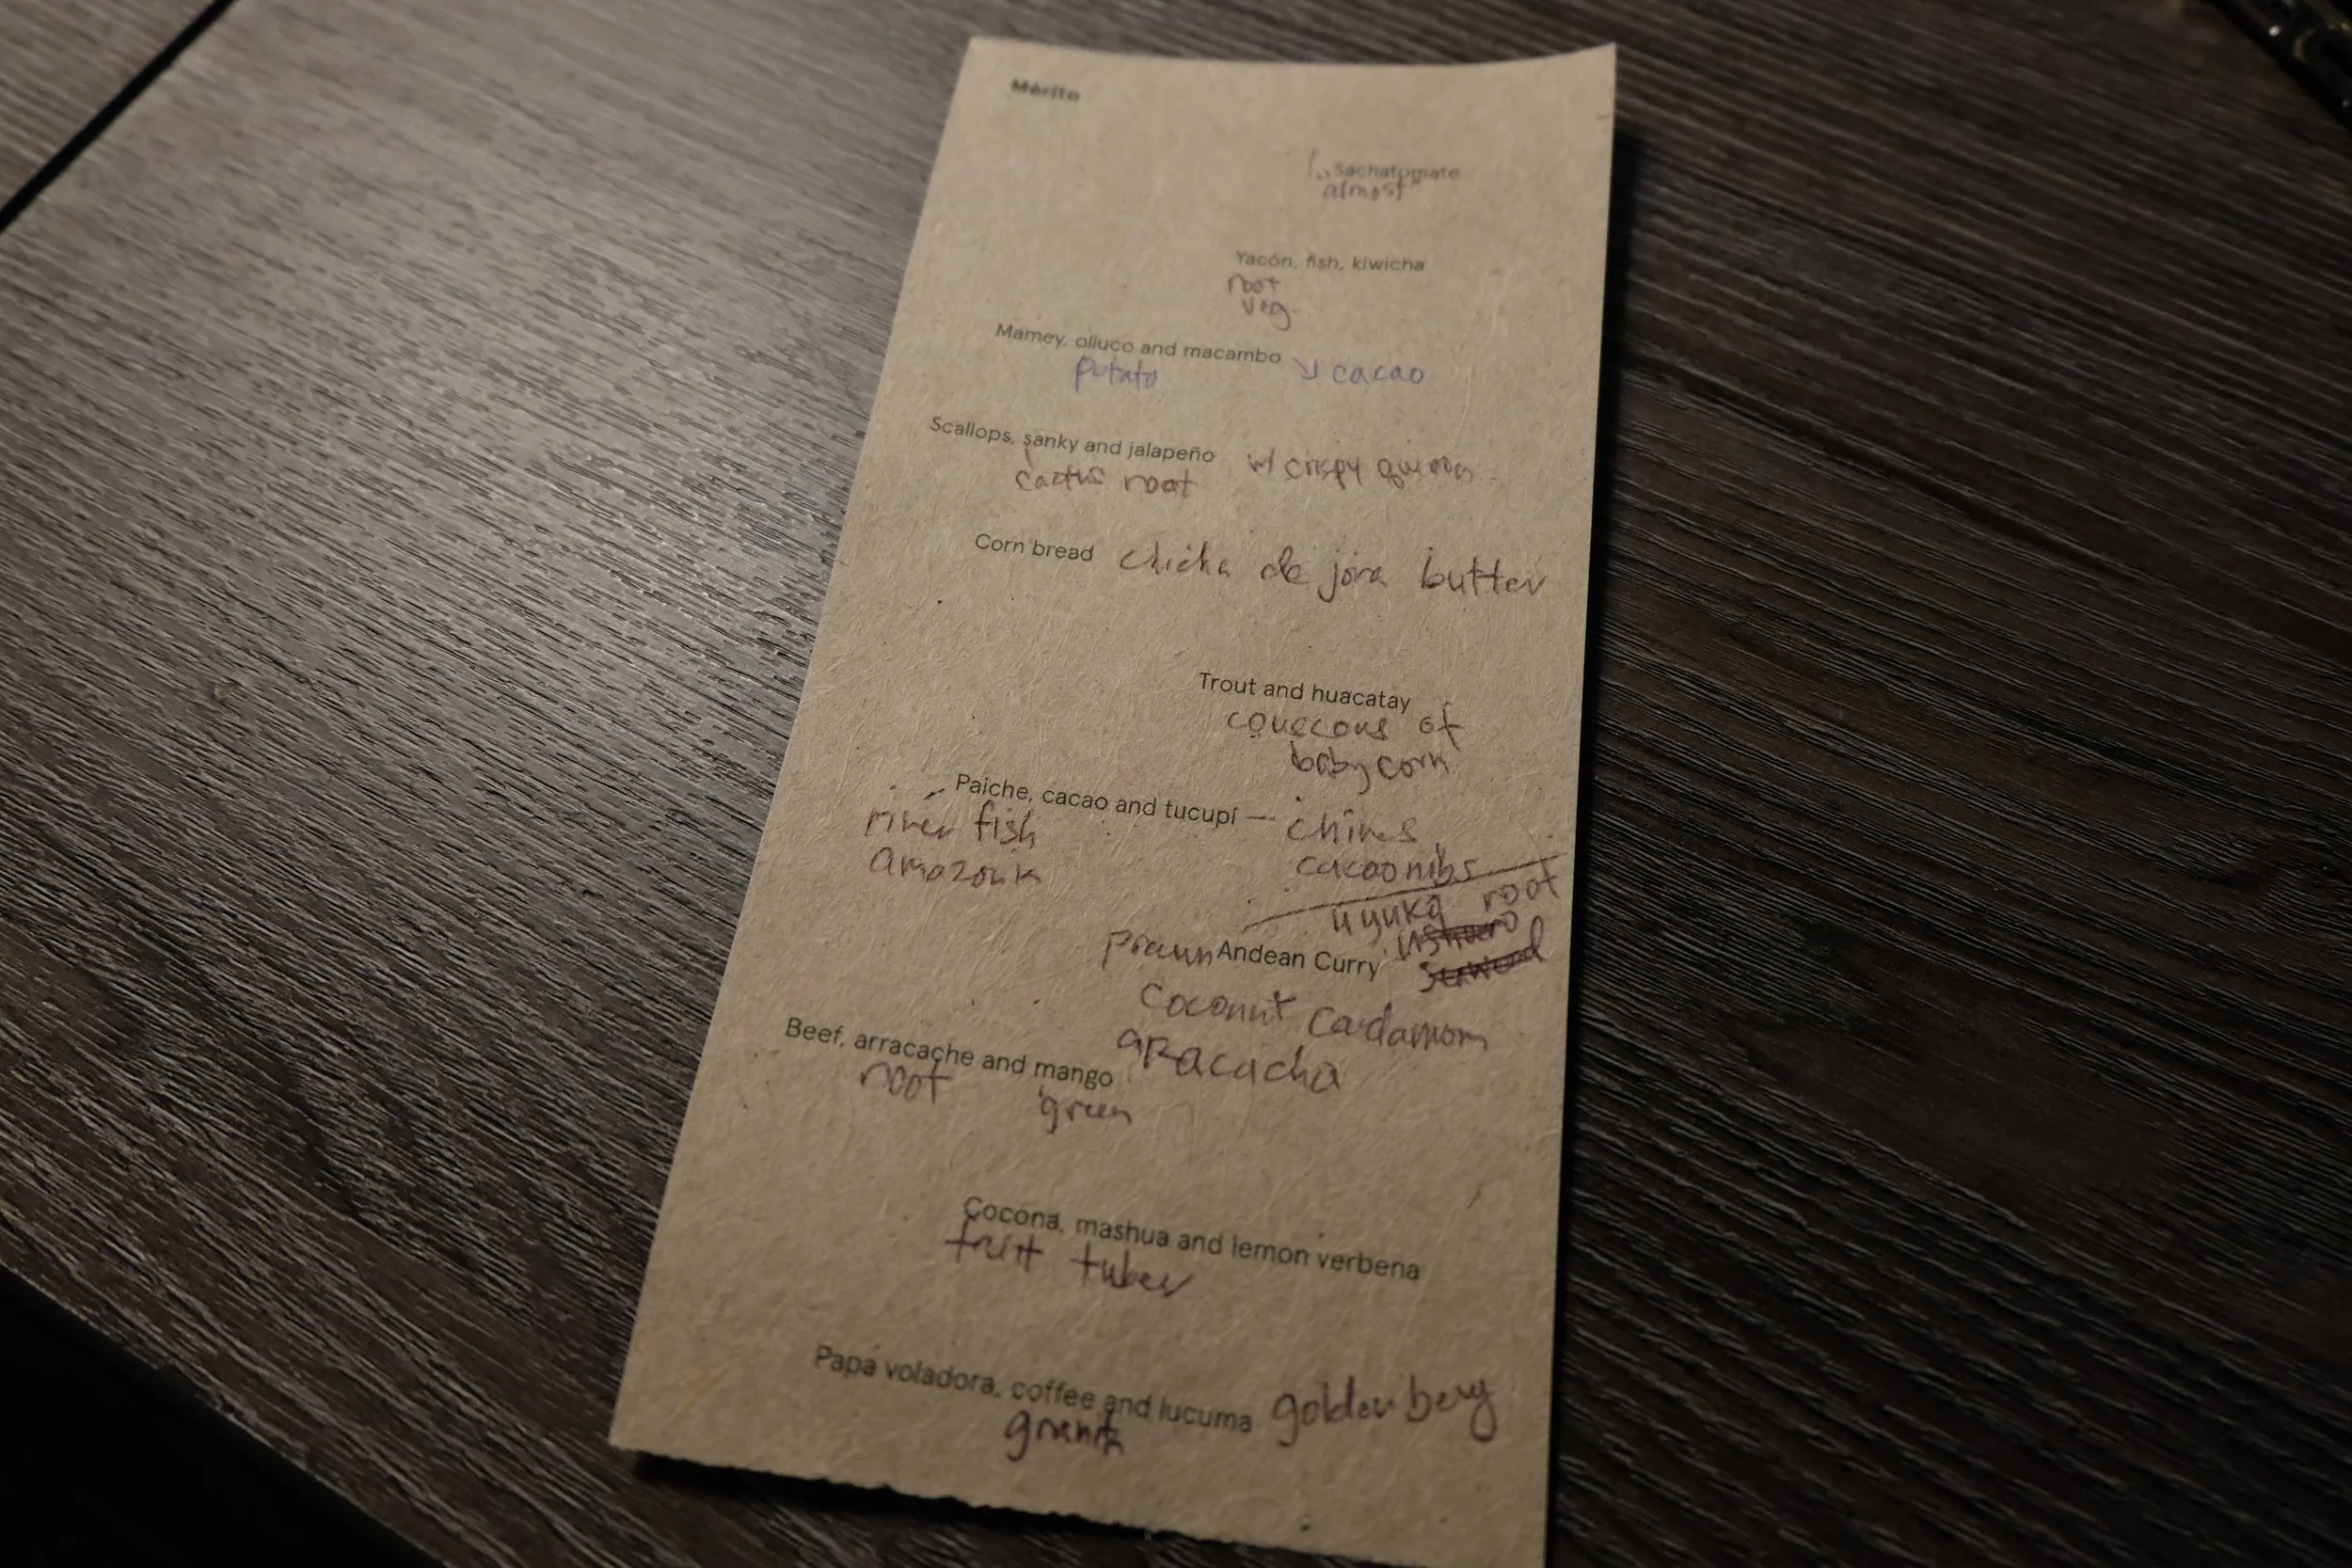 Mérito
Sachatomate
almost
Yacón, fish, kiwicha
root
veg.
Mamey, olluco and macambo
potato cacao
Scallops, sanky and jalapeño w/ crispy quinoa
cactus root
Corn bread chicha de jora butter
Trout and huacatay
couscous of
baby corn
Paiche, cacao and tucupí —
river fish
amazonik
cacao nibs
root
Prawn Andean Curry
coconut cardamom
aracacha
Beef, arracache and mango
root green
Cocona, mashua and lemon verbena
fruit tuber
Papa voladora, coffee and lucuma golden berry